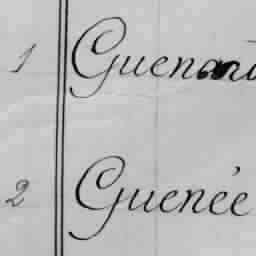 1 Guenand
2 Guenée